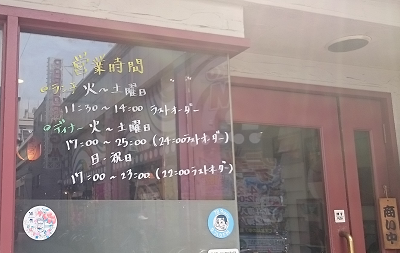 営業時間
ランチ 火〜土曜日
11:30〜14:00 ラストオーダー
ディナー 火〜土曜日
17:00〜25:00(24:00ラストオーダー)
日・祝日
17:00〜23:00(22:00ラストオーダー)
商い中